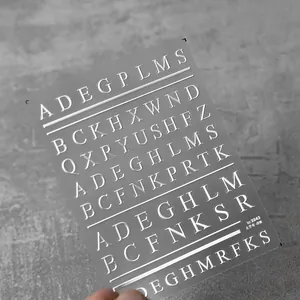 ADEGPLMS
BCKHXWND
QXPYUSHFZ
ADEGHLMS
BCFNKPRTK
ADEGHLM
BCFNKSR
DEGHMRFKS